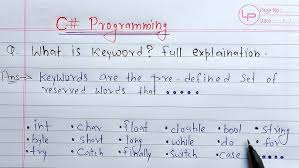 C# Programming
LP
Page No:
Date:
Q. What is Keyword? Full explaination.
Ans→ Keywords are the pre-defined set of
reserved words that .....
• int • char • float • double • bool • string
• byte • short • long • while • do • for
• try • Catch • finally • Switch • case .....